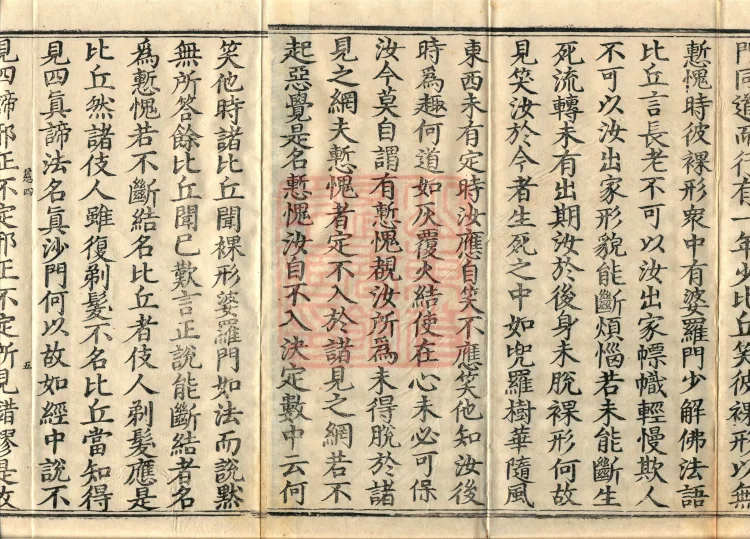 門同道而行有一年少比丘笑彼裸形以無
慙愧時彼裸形衆中有婆羅門少解佛法語
比丘言長老不可以汝出家幖幟輕慢欺人
不可以汝出家形貌能斷煩惱若未能斷生
死流轉未有出期汝於後身未脫裸形何故
見笑汝於今者生死之中如兜羅樹華隨風
東西未有定時汝應自笑不應笑他知汝後
時爲趣何道如灰覆火結使在心未必可保
汝今莫自謂有慙愧覩汝所爲未得脫於諸
見之網夫慙愧者定不入於諸見之網若不
起惡覺是名慙愧汝自不入決定數中云何
笑他時諸比丘聞裸形婆羅門如法而說默
無所答餘比丘聞已歎言正說能斷結者名
爲慙愧若不斷結名比丘者伎人剃髮應是
比丘然諸伎人雖復剃髮不名比丘當知得
見四眞諦法名眞沙門何以故如經中說不
見四諦邪正不定邪正不定所見錯謬是故
五